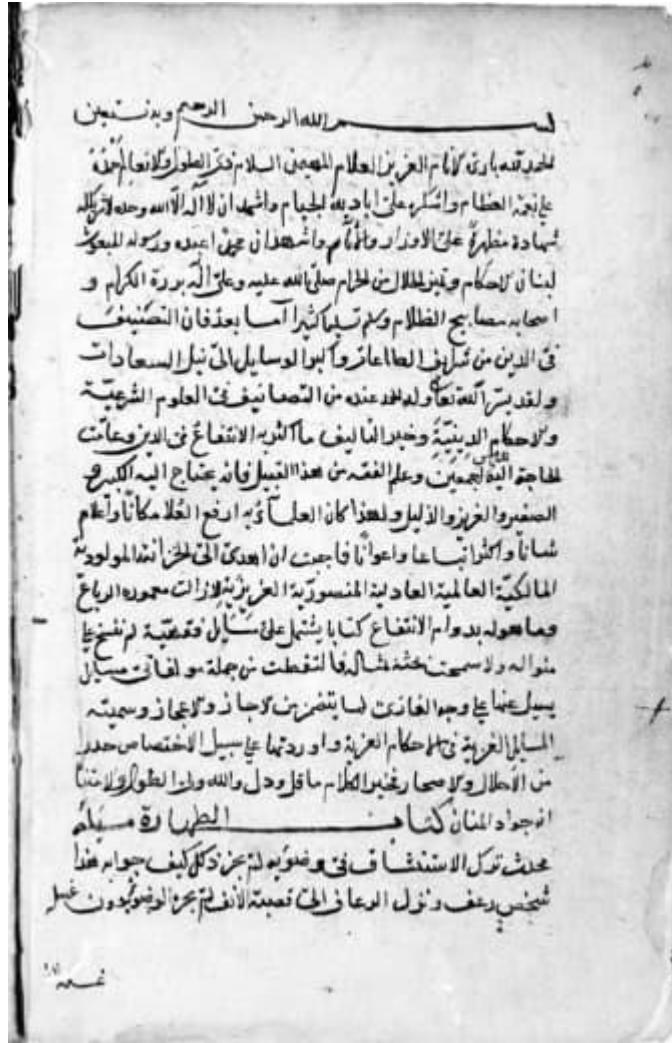 بسم الله الرحمن الرحيم وبه نستعين
الحمد لله بارئ الانام العزيز العلام المهيمن السلام ذي الطول والانعام احمده
على نعمه العظام واشكره على اياديه الجسام واشهد ان لا اله الا الله وحده لا شريك له
شهادة مطهرة على الاوزار والآثام واشهد ان محمدا عبده ورسوله المبعوث
لبيان الاحكام وتميز الحلال من الحرام صلى الله عليه وعلى آله بررة الكرام و
اصحابه مصابيح الظلام وسلم تسليما كثيرا اما بعد فان التصنيف
في الدين من الطاعات واكبر الوسايل الى نيل السعادات
ولقد يسر الله تعالى وله الحمد عنده من التصانيف في العلوم الشرعية
والاحكام الدينية وخير التاليف ما اكثر به الانتفاع في الدين وعامت
الحاجة اليه اجمعين وعلم الفقه من هذا القبيل فانه يحتاج اليه الكبير و
الصغير والعزيز والذليل ولهذا كان العلماء به ارفع العلا مكانا واعلام
شانا واكثر اتباعا واعوانا فاحببت ان اهدى الى الخزانة المولوية
المالكية العالمية العادلية المنصورية العزيزية لازالت معمورة الرباع
وماهولة بدوام الانتفاع كتابا يشتمل على مسايل فقهية لم ينسج على
منواله ولا سمحت بمثاله فالتقطت من جملة مولفاتي مسايل
يسيل عنها على وجه الغاز لما يتضمن من الاجاز والاعجاز وسميته
المسايل الغريبة في الاحكام العزيزة واوردتها على سبيل الاختصاص حذرا
من الاخلال والاضجار فخير الكلام ما قل ودل والله ولى الطول والامتنان
انه جواد المنان كتاب الطهارة مسيلة
محدث ترك الاستنشاق في وضوئه لم يجز ذلك كيف جوابه هذا
شخص رعف ونزل الرعاف الى قصبة الانف لم يجزه الوضوء بدون غسل